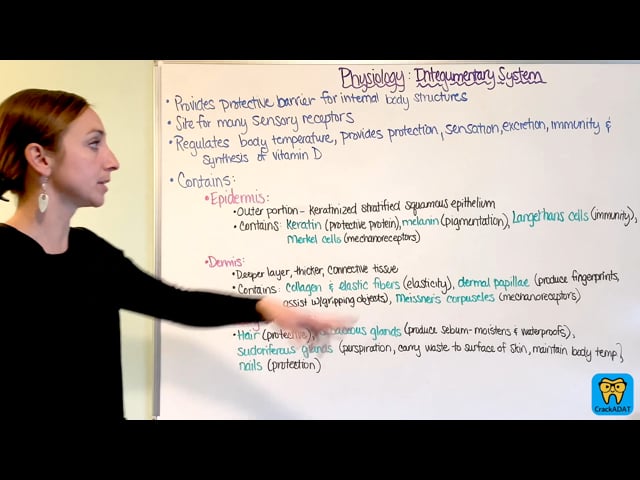 Physiology: Integumentary System
• Provides protective barrier for internal body structures
• Site for many sensory receptors
• Regulates body temperature, provides protection, sensation, excretion, immunity &
synthesis of vitamin D
• Contains:
• Epidermis:
• Outer portion - keratinized stratified squamous epithelium
• Contains: Keratin (protective protein), melanin (pigmentation), Langerhans cells (immunity),
Merkel cells (mechanoreceptors)
• Dermis:
• Deeper layer, thicker, connective tissue
• Contains: collagen & elastic fibers (elasticity), dermal papillae (produce fingerprints,
assist w/gripping objects), Meissner's corpuscles (mechanoreceptors)
Hair (protective), glands (produce sebum - moistens & waterproofs),
sudoriferous glands (perspiration, carry waste to surface of skin, maintain body temp),
nails (protection)
CrackADAT